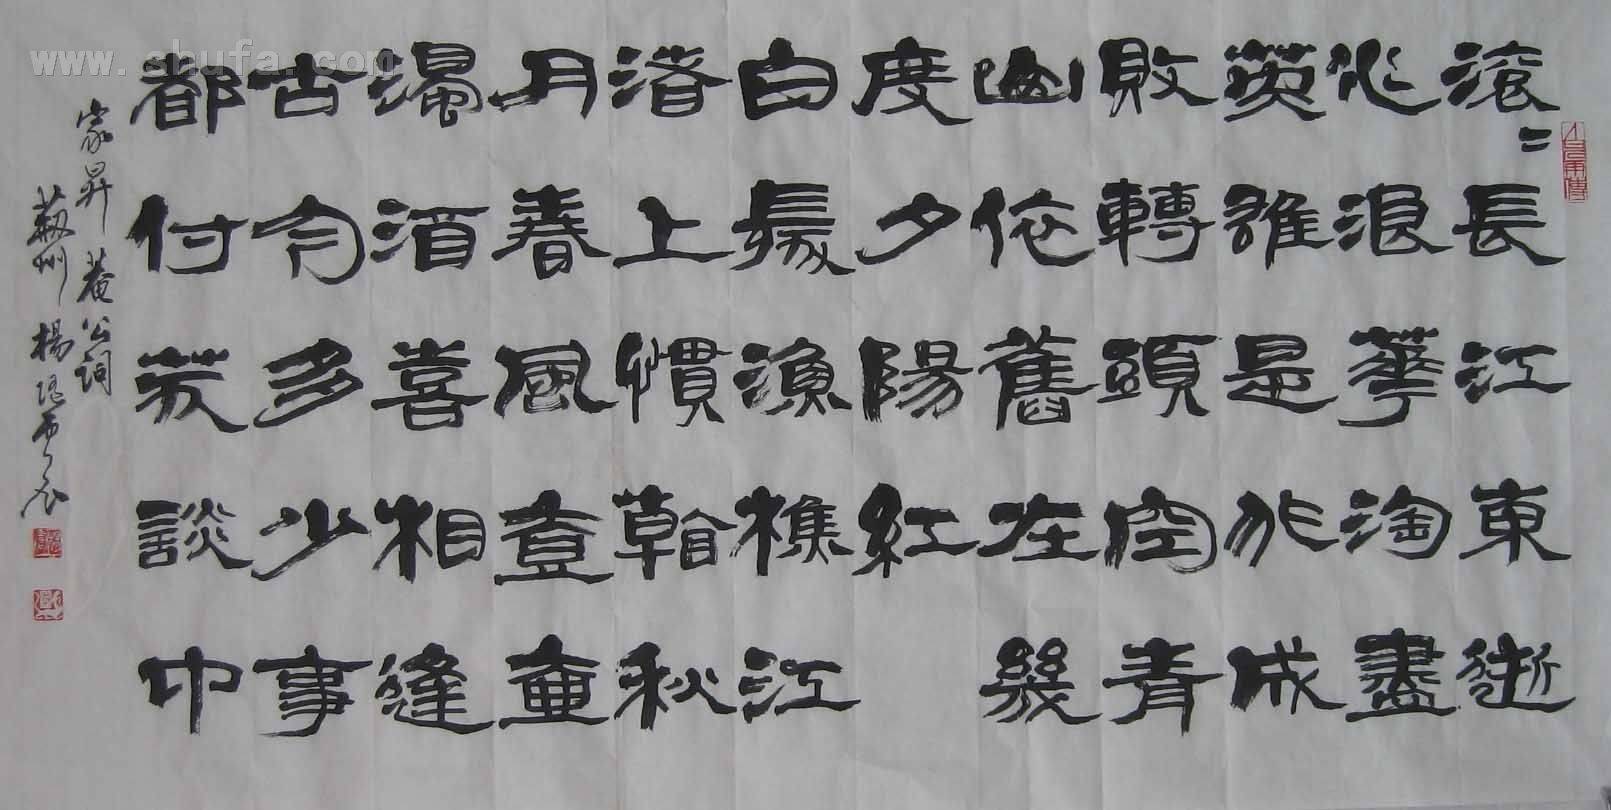 滚〻長江東逝
水浪華淘盡
英雄是非成
敗轉頭空青
山依舊在幾
度夕陽紅
白髮漁樵江
渚上慣看秋
月春風壹壺
濁酒喜相逢
古今多少事
都付笑談中
家昇菴公詞
楊
www.shufa.com